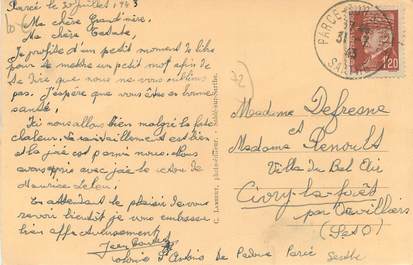 Parcé le 30 juillet 1943
Ma chère Grand'mère,
Ma chère
Je profite d'un petit moment de libre
pour te mettre un petit mot afin de
te dire que nous ne vous oublions
pas. J'espère que vous êtes en bonne
santé.
Ici nous allons bien malgré la forte
chaleur. Le ravitaillement est bien
et la joie est parmi nous. Nous
avons appris avec joie le retour de
Maurice
En attendant le plaisir de vous
revoir bientôt je vous embrasse
bien affectueusement
Jean
Colonie St Antoine de Padoue Parcé Sarthe
C. Lessort, photo-éditeur, Sablé-sur-Sarthe.
PARCE
31
43
1.20
Madame Defresne
et
Madame Renoult
Villa du Bel Air
Civry-la-forêt
par Orvilliers
(S et O)